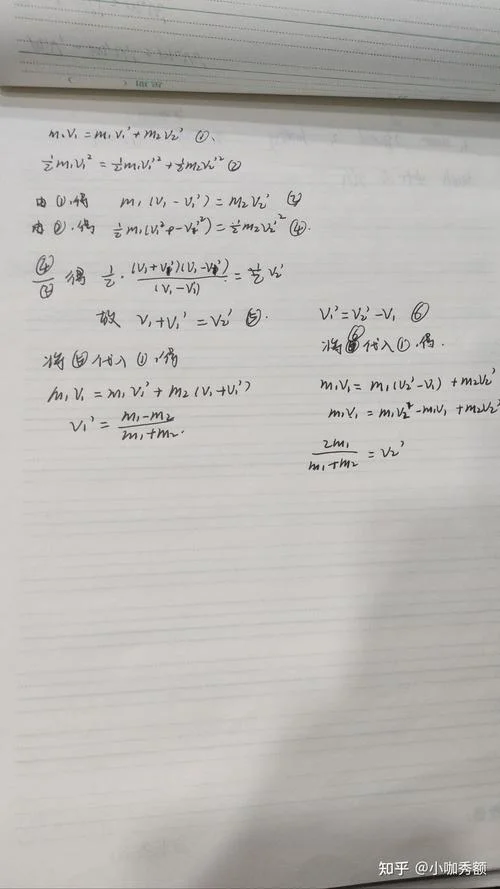 m₁v₁=m₁v₁'+m₂v₂' ①、
½m₁v₁²=½m₁v₁'²+½m₂v₂'² ②
由①.得 m₁(v₁-v₁')=m₂v₂' ③
由②.得 ½m₁(v₁²-v₁'²)=½m₂v₂'² ④.
④/③ 得 ½·(v₁+v₁')(v₁-v₁')/(v₁-v₁)=½v₂'
故 v₁+v₁'=v₂' ⑤.
将⑤代入①,得
m₁v₁=m₁v₁'+m₂(v₁+v₁')
v₁'=(m₁-m₂)/(m₁+m₂).
v₁'=v₂'-v₁ ⑥
将⑥代入①,得.
m₁v₁=m₁(v₂'-v₁)+m₂v₂'
m₁v₁=m₁v₂'-m₁v₁+m₂v₂'
2m₁/(m₁+m₂)=v₂'
知乎 @小咖秀额